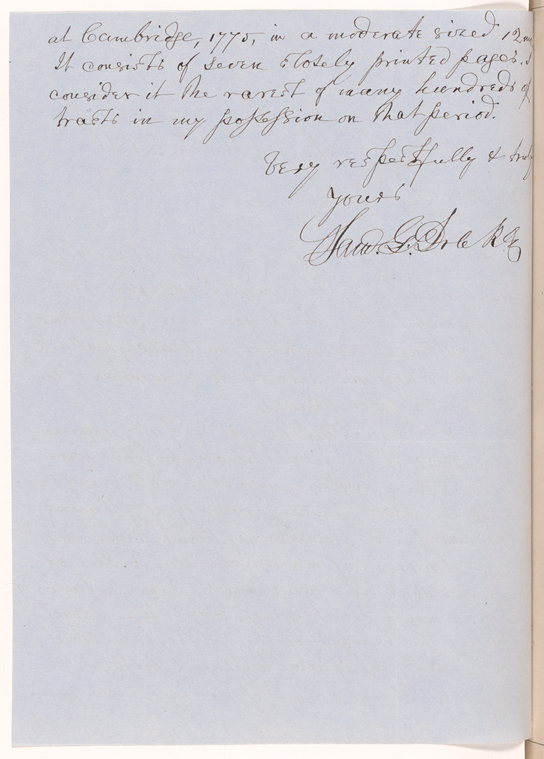 at Cambridge, 1775, in a moderate sized 12mo
It consists of seven closely printed pages. I
consider it the rarest of many hundreds of
tracts in my possession on that period.
Very respectfully & truly
yours
Saml. G. Drake